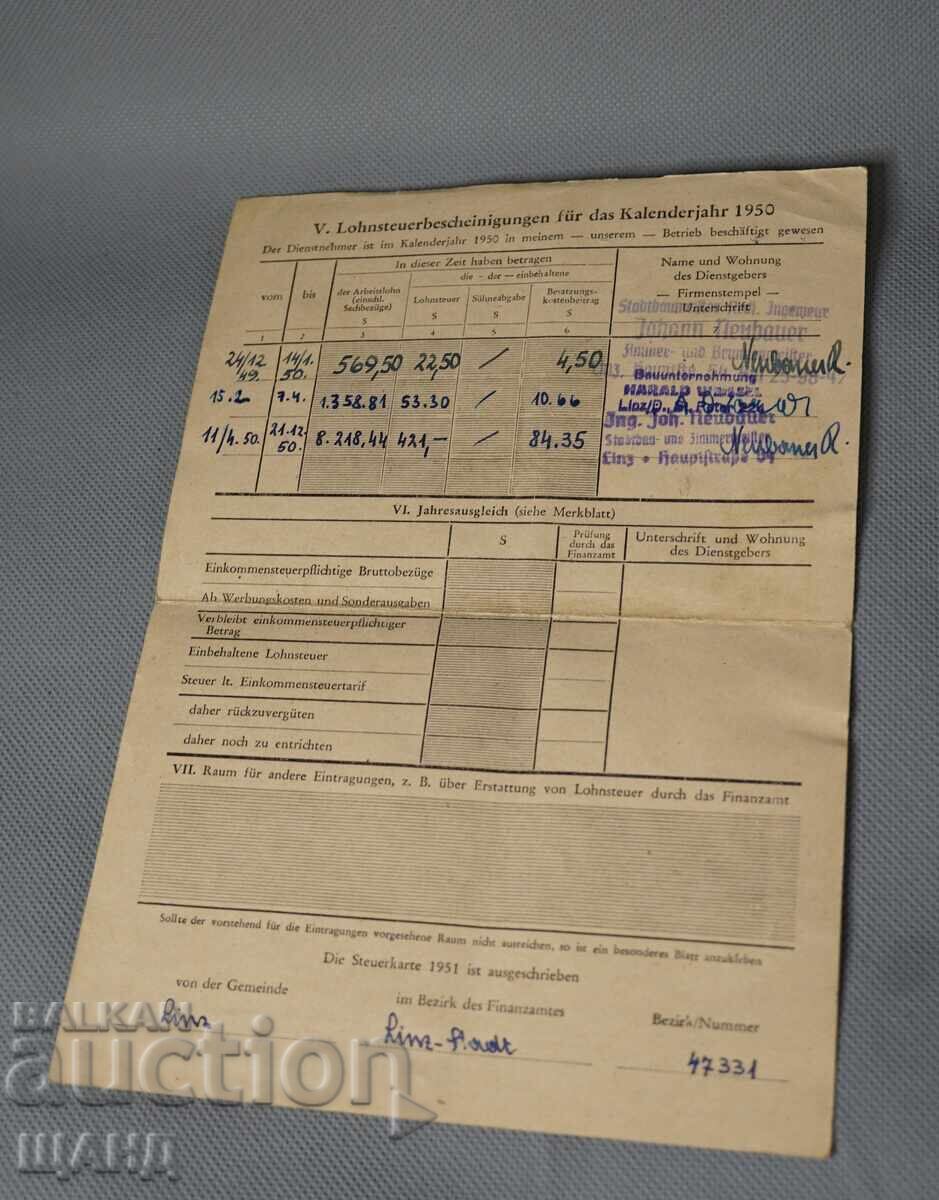 V. Lohnsteuerbescheinigungen für das Kalenderjahr 1950
Der Dienstnehmer ist im Kalenderjahr 1950 in meinem — unserem — Betrieb beschäftigt gewesen
vom
bis
In dieser Zeit haben betragen
die - der — einbehaltene
der Arbeitslohn (einschl. Sachbezüge)
S
Lohnsteuer
S
Sühneabgabe
S
Besatzungs-kostenbeitrag
S
Name und Wohnung
des Dienstgebers
— Firmenstempel —
Unterschrift
1 2 3 4 5 6 7
24/12 49. 14/1. 50. 569,50 22,50 / 4,50
Johann Neubauer
Neubauer R.
15.2 7.4. 1.358.81 53.30 / 10.66
Bauunternehmung
HARALD
Linz/D.,
11/4. 50. 21.12. 50. 8.218,44 421,— / 84.35
Ing. Joh. Neubauer
Stadtbau- und Zimmermeister
Linz • Hauptstraße 54
Neubauer R.
VI. Jahresausgleich (siehe Merkblatt)
S
Prüfung durch das Finanzamt
Unterschrift und Wohnung
des Dienstgebers
Einkommensteuerpflichtige Bruttobezüge
Ab Werbungskosten und Sonderausgaben
Verbleibt einkommensteuerpflichtiger
Betrag
Einbehaltene Lohnsteuer
Steuer lt. Einkommensteuertarif
daher rückzuvergüten
daher noch zu entrichten
VII. Raum für andere Eintragungen, z. B. über Erstattung von Lohnsteuer durch das Finanzamt
Sollte der vorstehend für die Eintragungen vorgesehene Raum nicht ausreichen, so ist ein besonderes Blatt anzukleben
Die Steuerkarte 1951 ist ausgeschrieben
von der Gemeinde
im Bezirk des Finanzamtes
Bezirk/Nummer
Linz
Linz-Stadt
47331
BALKAN
auction
ШАНД